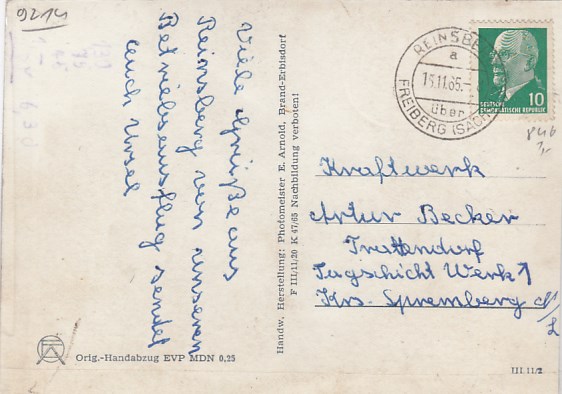 9214
Viele Grüße aus
Reinsberg von unserem
Betriebsausflug sendet
euch Ursel
Orig.-Handabzug EVP MDN 0,25
Handw. Herstellung: Photomeister E. Arnold, Brand-Erbisdorf
F III/11/20 K 47/65 Nachbildung verboten!
REINSBE
a
15.11.65.-
über
FREIBERG (SACHS)
DEUTSCHE
DEMOKRATISCHE REPUBLIK
10
846
1,-
Kraftwerk
Artur Becker
Trattendorf
Tagschicht Werk 1
Krs. Spremberg d/
L
III.11/2